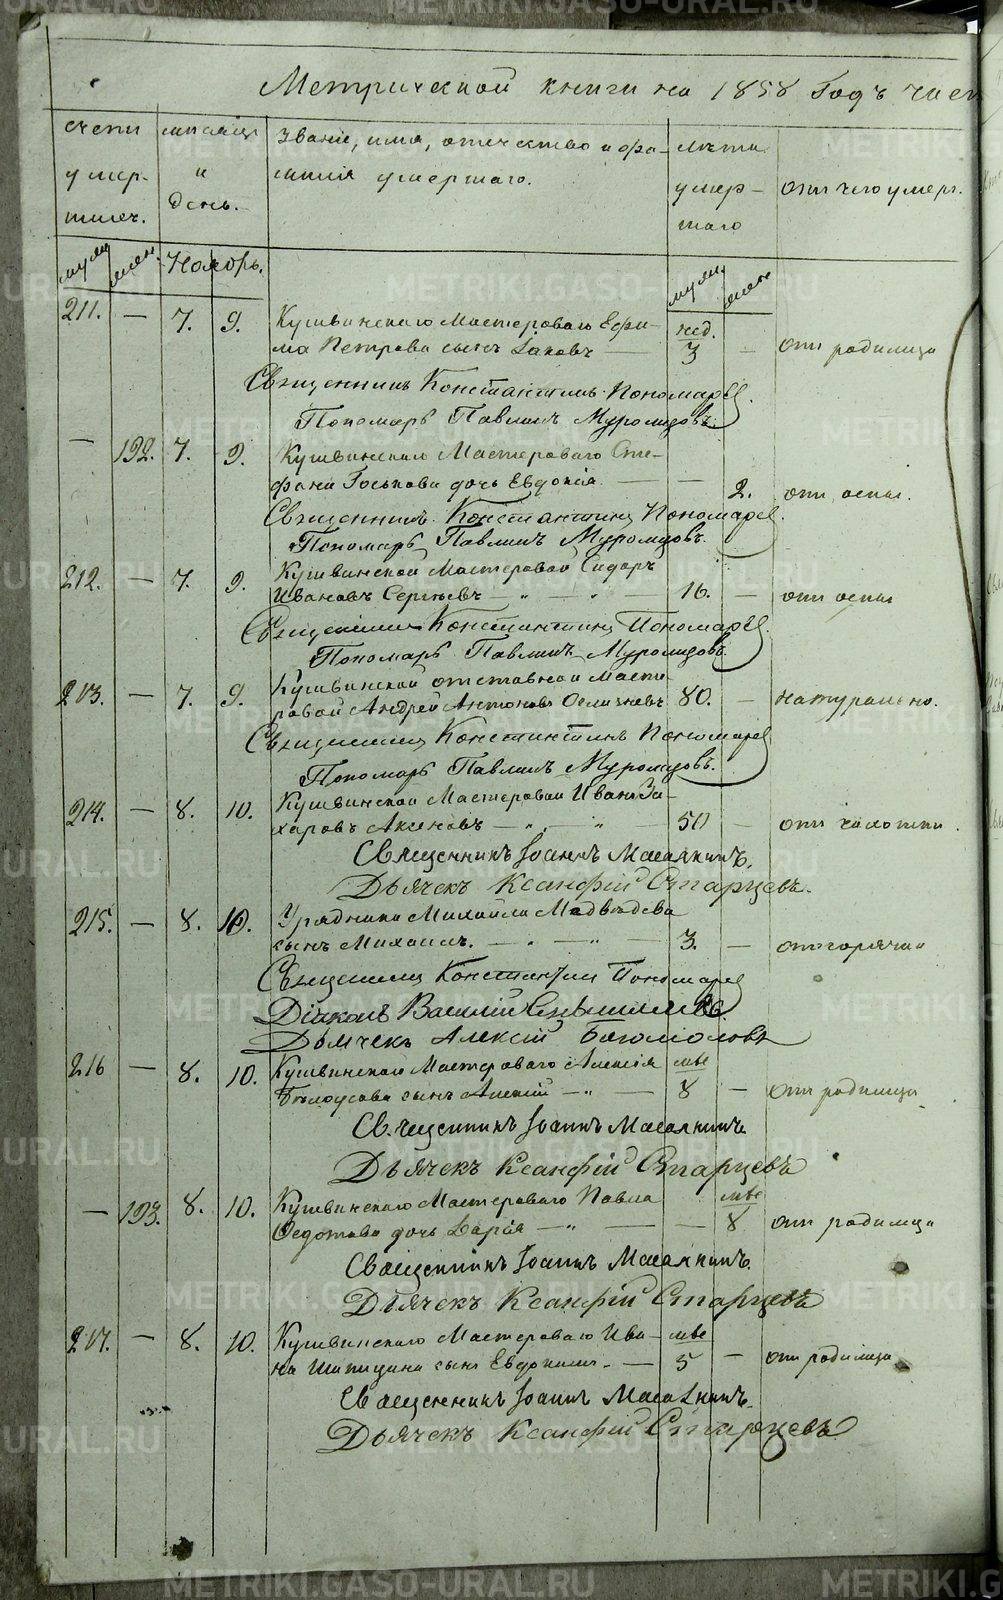 Метрической книги на 1858 Годъ част
счетъ умершихъ.
мѣсяцъ и день.
Званіе, имя, отчество и фамилія умершаго.
лѣта умершаго
отъ чего умеръ.
муж. жен. Ноябрь. муж. жен.
211. — 7. 9. Кушвинскаго Мастероваго Ефи- нед.
ма Петрова сынъ Іаковъ — 3 — отъ родимца
Священникъ Константинъ Пономаревъ.
Пономарь Павлинъ Муромцовъ.
— 192. 7. 9. Кушвинскаго Мастероваго Сте-
фана Госькова дочь Евдокія — — 2. отъ оспы.
Священникъ Константинъ Пономаревъ.
Пономарь Павлинъ Муромцовъ.
212. — 7. 9. Кушвинской Мастеровой Сидоръ
Ивановъ Сергѣевъ — " — " — 16. — отъ оспы
Священникъ Константинъ Пономаревъ.
Пономарь Павлинъ Муромцовъ.
213. — 7. 9. Кушвинской отставной Масте-
ровой Андрей Антоновъ 80. — натурально.
Священникъ Константинъ Пономаревъ
Пономарь Павлинъ Муромцовъ.
214. — 8. 10. Кушвинской Мастеровой Иванъ За-
харовъ Аксеновъ — " — " — 50 — отъ чахотки.
Священникъ Іоаннъ Масалкинъ.
Дьячекъ Ксанфій Старцевъ.
215. — 8. 10. Урядника Михайла Медвѣдева
сынъ Михаилъ. — " — " — 3. — отъ горячки
Священникъ Константинъ Пономаревъ
Діаконъ Василій
Дьячекъ Алексій Богомоловъ
216 — 8. 10. Кушвинскаго Мастероваго Алексія мѣс
Бѣлоусова сынъ Алексій — " — 8 — отъ родимца
Священникъ Іоаннъ Масалкинъ.
Дьячекъ Ксанфій Старцевъ
— 193. 8. 10. Кушвинскаго Мастероваго Павла мѣс
Ѳедотова дочь Дарія — " — — 8 отъ родимца
Священникъ Іоаннъ Масалкинъ.
Дьячекъ Ксанфій Старцевъ
217. — 8. 10. Кушвинскаго Мастероваго Ива- мѣс
на Шапицина сынъ Евдокимъ. — 5 — отъ родимца
Священникъ Іоаннъ Масалкинъ.
Дьячекъ Ксанфій Старцевъ
METRIKI.GASO-URAL.RU